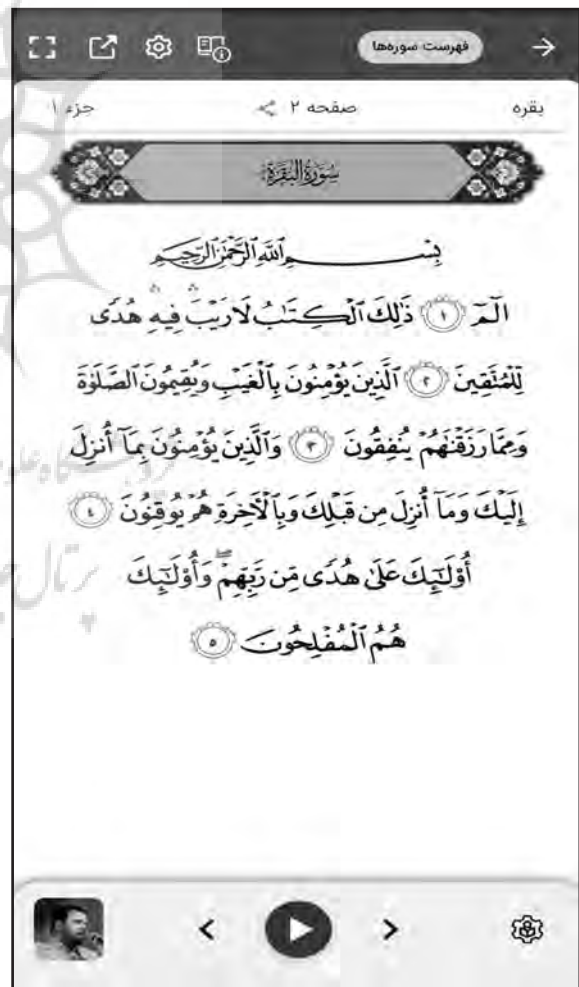 فهرست سوره‌ها
بقره
صفحه ۲
جزء ۱
سُورَةُ البَقَرَةِ
بِسْمِ ٱللَّهِ ٱلرَّحْمَٰنِ ٱلرَّحِيمِ
الٓمٓ ١ ذَٰلِكَ ٱلْكِتَٰبُ لَا رَيْبَ ۛ فِيهِ ۛ هُدًى
لِّلْمُتَّقِينَ ٢ ٱلَّذِينَ يُؤْمِنُونَ بِٱلْغَيْبِ وَيُقِيمُونَ ٱلصَّلَوٰةَ
وَمِمَّا رَزَقْنَٰهُمْ يُنفِقُونَ ٣ وَٱلَّذِينَ يُؤْمِنُونَ بِمَآ أُنزِلَ
إِلَيْكَ وَمَآ أُنزِلَ مِن قَبْلِكَ وَبِٱلْءَاخِرَةِ هُمْ يُوقِنُونَ ٤
أُو۟لَٰٓئِكَ عَلَىٰ هُدًى مِّن رَّبِّهِمْ ۖ وَأُو۟لَٰٓئِكَ
هُمُ ٱلْمُفْلِحُونَ ٥